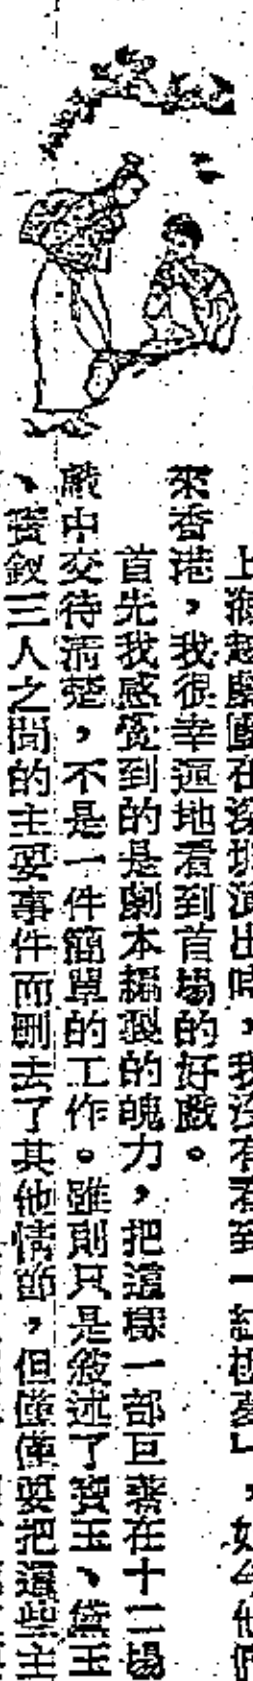 上海越劇團在深圳演出時，我沒有看到「紅樓夢」，如今他們
來香港，我很幸運地看到首場的好戲。
首先我感覺到的是劇本編製的魄力，把這樣一部巨著在十二場
戲中交待清楚，不是一件簡單的工作。雖則只是敍述了寶玉、黛玉
、寶釵三人之間的主要事件而刪去了其他情節，但僅僅要把這些主